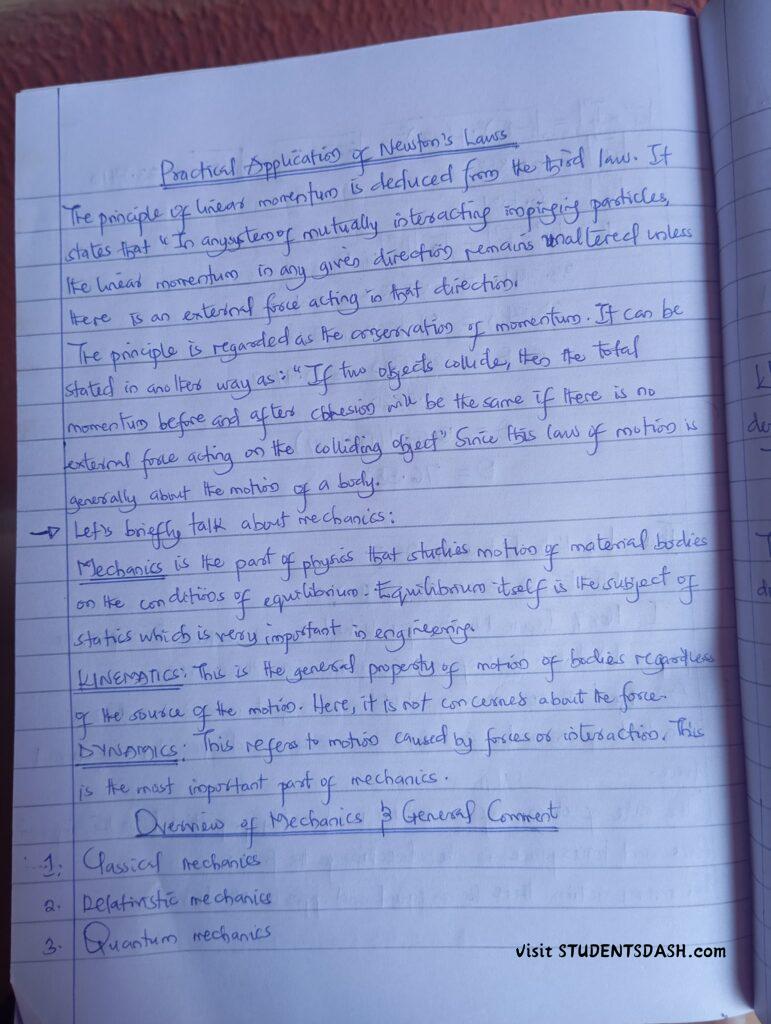 Practical Application of Newton's Laws
The principle of linear momentum is deduced from the third law. It
states that "In any system of mutually interacting impinging particles,
the linear momentum in any given direction remains unaltered unless
there is an external force acting in that direction.
The principle is regarded as the conservation of momentum. It can be
stated in another way as: "If two objects collide, then the total
momentum before and after cohesion will be the same if there is no
external force acting on the colliding object" Since this law of motion is
generally about the motion of a body.
→ Let's briefly talk about mechanics:
Mechanics is the part of physics that studies motion of material bodies
on the conditions of equilibrium. Equilibrium itself is the subject of
statics which is very important in engineering.
KINEMATICS: This is the general property of motion of bodies regardless
of the source of the motion. Here, it is not concerned about the force.
DYNAMICS: This refers to motion caused by forces or interaction. This
is the most important part of mechanics.
Overview of Mechanics & General Comment
1. Classical mechanics
2. Relativistic mechanics
3. Quantum mechanics
visit STUDENTSDASH.com